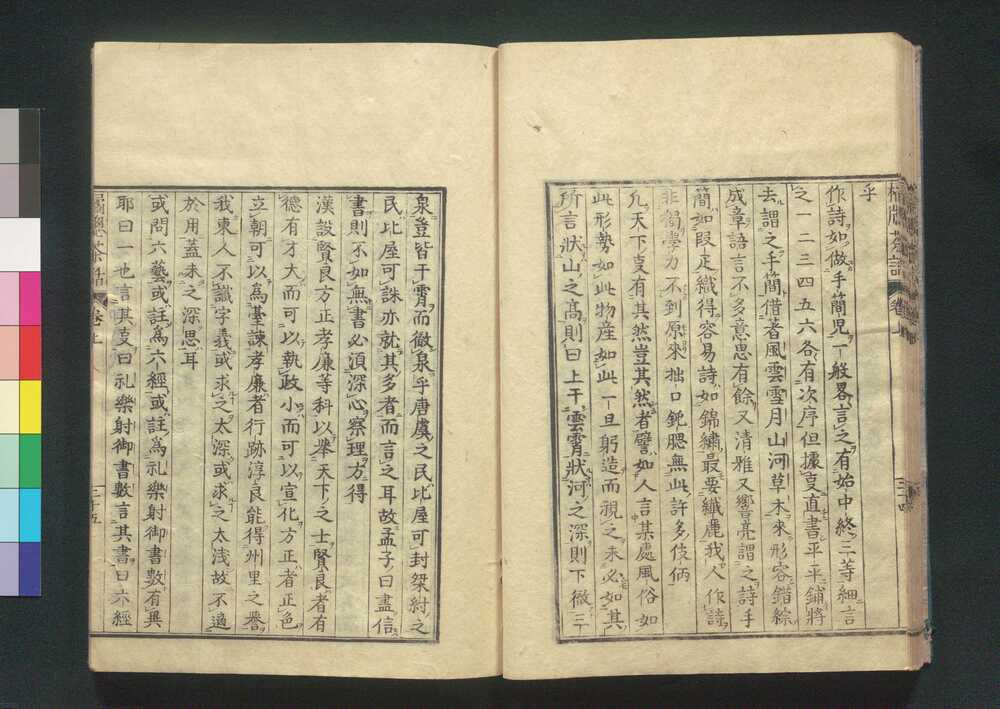 橘牕茶話 卷上 三十四
乎
作詩如做手簡兒一般畧言之有始中終三等細言
之一二三四五六各有次序但據叓直書平平鋪將
去謂之手簡借著風雲雪月山河草木來形容錯綜
成章語言不多意思有餘又清雅又響亮謂之詩手
簡如叚疋織得容易詩如錦繡最要纖麗我人作詩
非獨學力不到原來拙口鈍腮無此許多伎倆
凢天下叓有其然豈其然者譬如人言某處風俗如
此形勢如此物産如此一旦躬造而視之未必如其
所言狀山之髙則曰上干雲霄狀河之深則下徹三
泉豈皆于霄而徹泉乎唐虞之民比屋可封桀紂之
民比屋可誅亦就其多者而言之耳故孟子曰盡信
書則不如無書必須深心察理方得
漢設賢良方正孝廉等科以舉天下之士賢良者有
德有才大而可以執政小而可以宣化方正者正色
立朝可以為臺諫孝廉者行跡淳良能得州里之譽
我東人不識字義或求之太深或求之太浅故不適
於用蓋未之深思耳
或問六藝或註為六經或註為礼樂射御書數有異
耶曰一也言其叓曰礼樂射御書數言其書曰六經
橘牕茶話 卷上 三十五